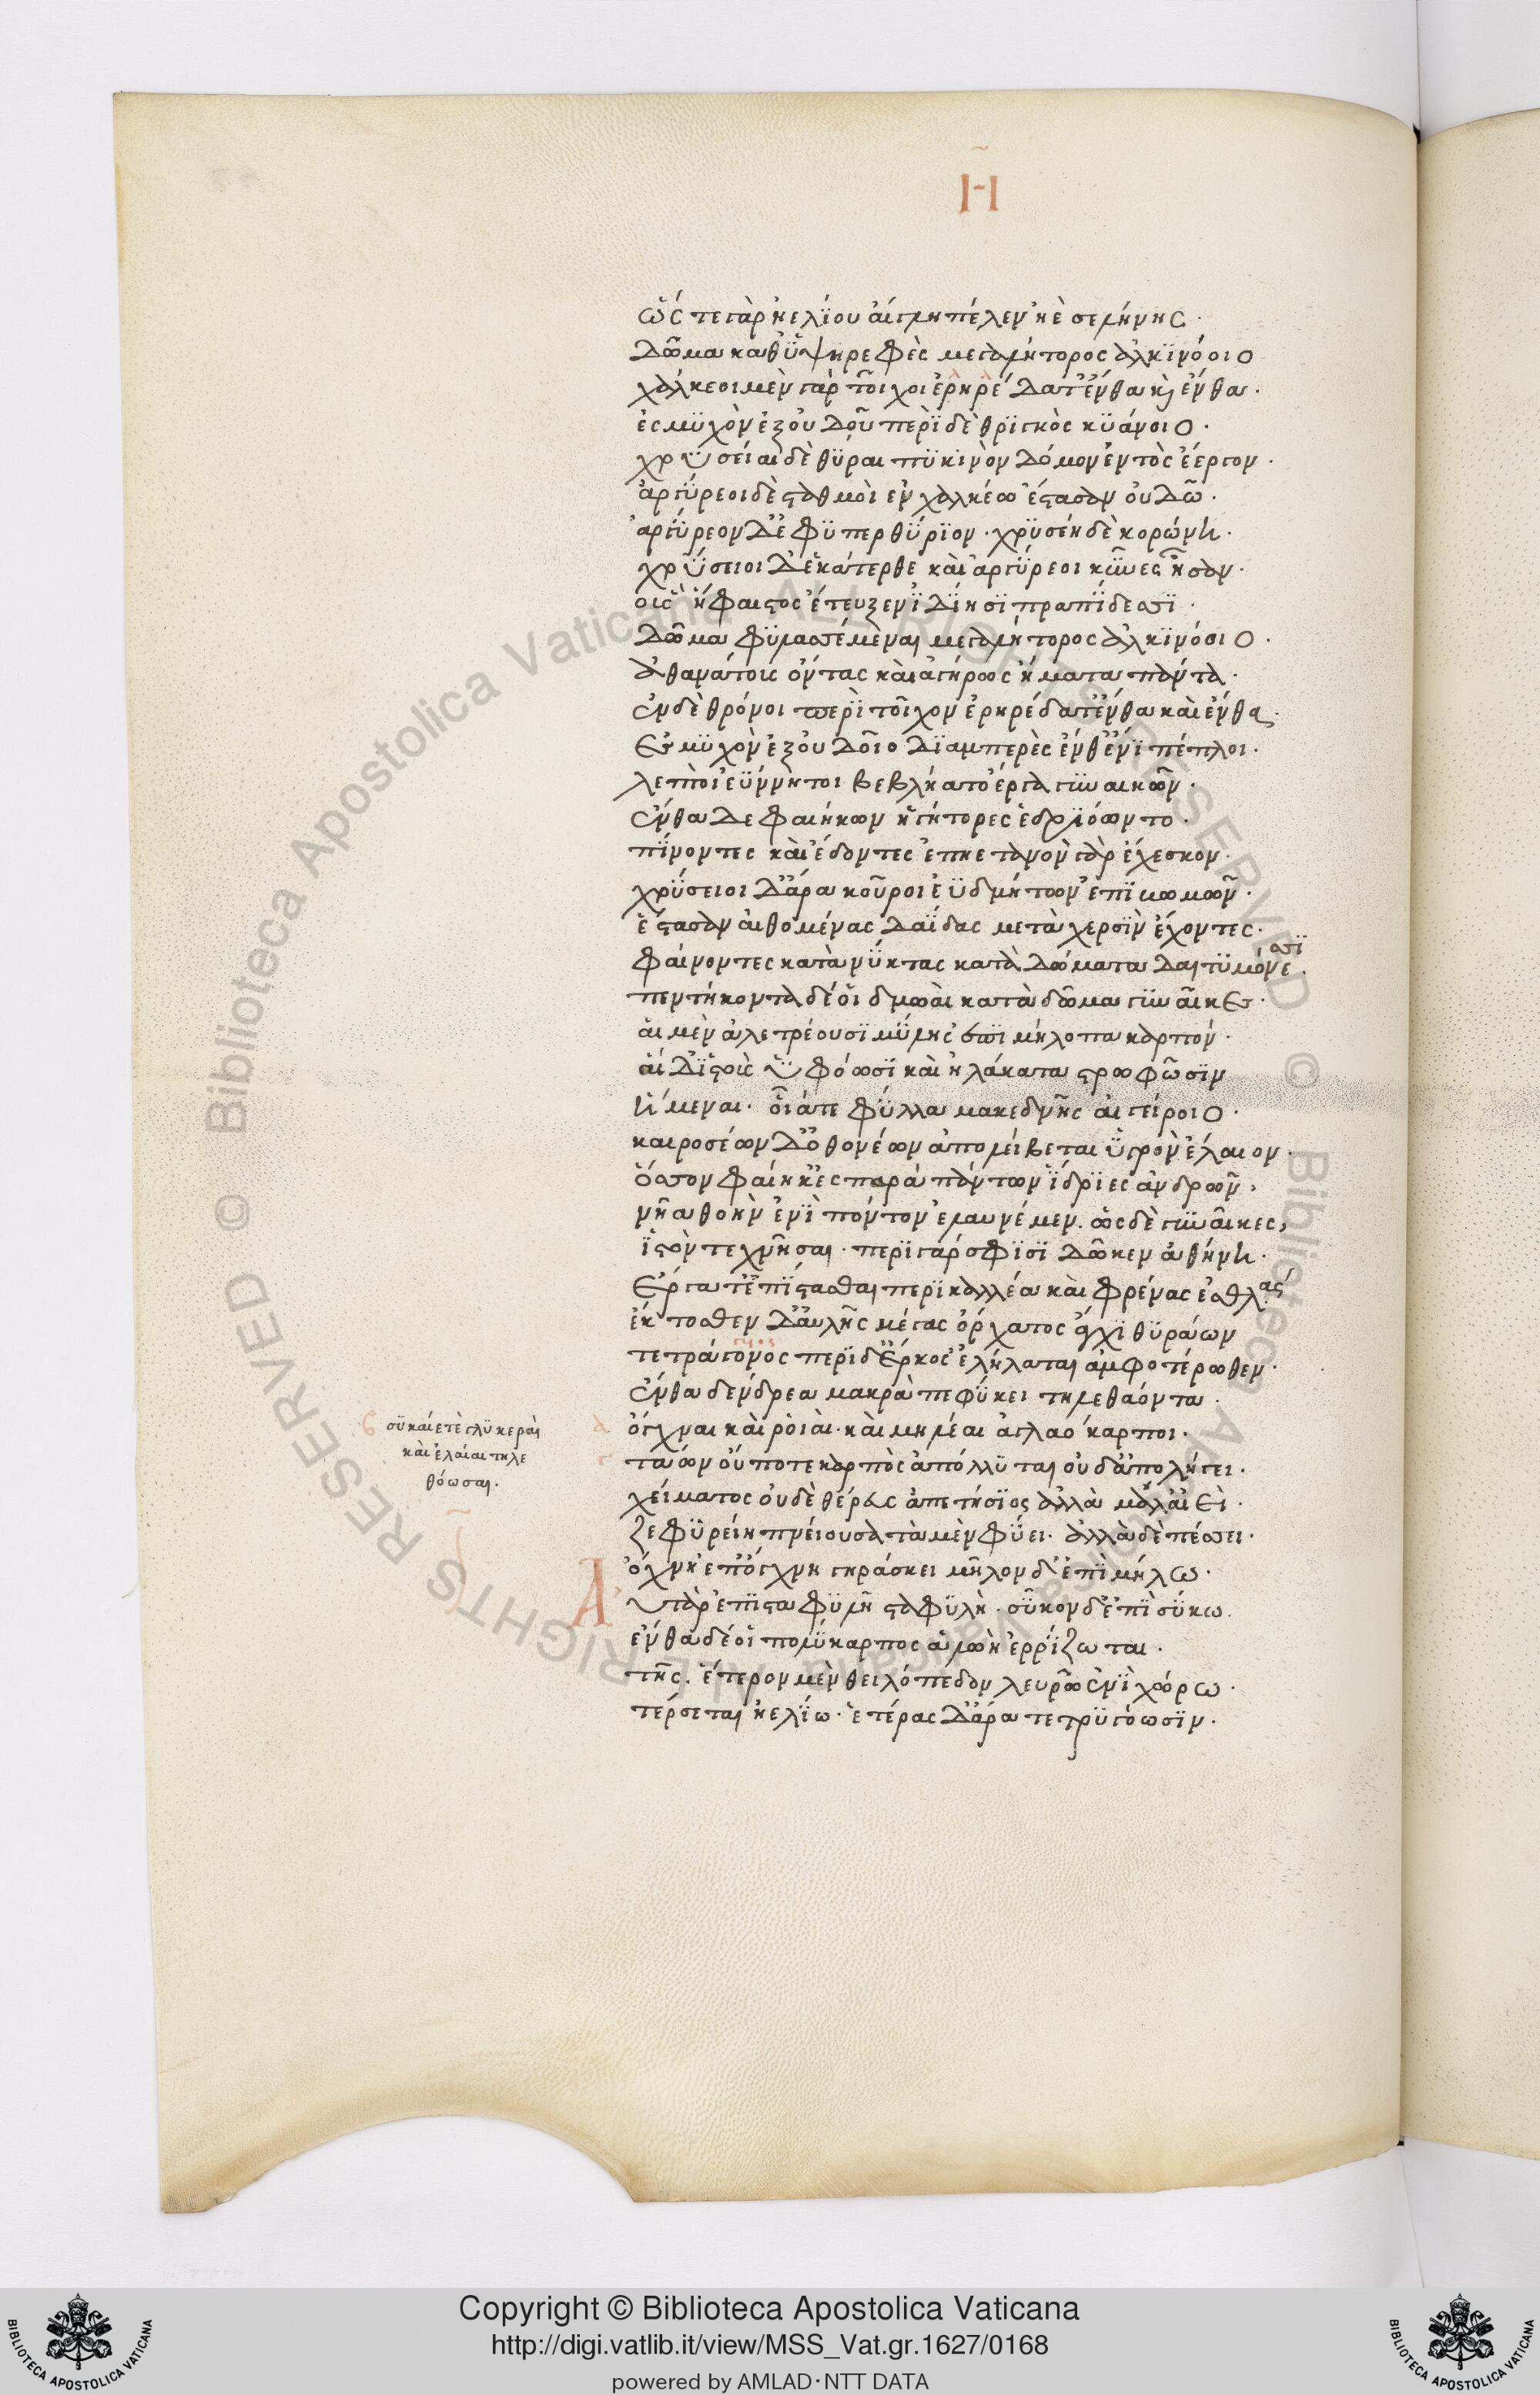 Η
ὥς τε γὰρ ἠελΐου αἴγλη πέλεν ἠὲ σελήνης ·
δῶμα καθ ϋψηρεφὲς μεγαλήτορος ἀλκϊνόοιο
χάλκεοι μὲν γὰρ τοῖχοι ἐρηρέδατ ἔνθα κὶ ἔνθα ·
ἐς μϋχὸν ἐξ οὐδοῦ περῒ δὲ θρϊγκὸς κϋάνοιο ·
χρύσειαι δὲ θύραι πϋκϊνὸν δόμον ἐντὸς ἔεργον ·
ἀργύρεοι δὲ ςαθμοὶ ἐν χαλκέω ἕςασαν οὐδῶ ·
ἀργύρεον δ ἐφ ϋπερθύρϊον · χρϋσέη δὲ κορώνη ·
χρύσειοι δ ἑκάτερθε καὶ ἀργύρεοι κῦνες ἦσαν ·
οἷς ἥφαιςος ἔτευξεν ϊδϋίησϊ πραπΐδεσσϊ ·
δῶμα φϋλασσέμεναι μεγαλήτορος ἀλκϊνόοιο ·
ἀθανάτοις ὄντας καὶ ἀγήρως ἤματα πάντα ·
ἐν δὲ θρόνοι περῒ τοῖχον ἐρηρέδατ ἔνθα καὶ ἔνθα ·
ἐς μϋχὸν ἐξ οὐδοῖο δϊαμπερὲς ἔνθ ἔνϊ πέπλοι ·
λεπτοὶ ἐΰννητοι βεβλήατο ἔργα γυναικῶν ·
ἔνθα δε φαιήκων ἡγήτορες ἑδρϊόωντο ·
πΐνοντες καὶ ἔδοντες ἐπηετανὸν γὰρ ἔχεσκον ·
χρύσειοι δ ἄρα κοῦροι ἐϋδμήτων ἐπῒ βωμῶν ·
ἕςασαν αἰθομένας δαΐδας μετὰ χερσῒν ἔχοντες ·
φαίνοντες κατὰ νύκτας κατὰ δώματα δαιτϋμόνεσσϊ ·
πεντήκοντα δέ οἱ δμωαὶ κατὰ δῶμα γυναῖκες ·
αἱ μὲν ἀλετρέουσϊ μύλης ἔπϊ μήλοπα καρπόν ·
αἱ δ ϊςοὺς ὑφόωσϊ καὶ ἠλάκατα ςρωφῶσϊν
ἥμεναι · οἷά τε φύλλα μακεδνῆς αἰγείροιο ·
καιροσέων δ ὀθονέων ἀπολείβεται ὑγρὸν ἔλαιον ·
ὅσσον φαίηκες παρὰ πάντων ΐδρϊες ἀνδρῶν ·
νῆα θοὴν ἐνῒ πόντον ἐλαυνέμεν · ὣς δὲ γυναῖκες ,
ϊςὸν τεχνῆσαι · περῒ γάρ σφϊσϊ δῶκεν ἀθήνη ·
ἔργα τ ἐπΐςασθαι περϊκαλλέα καὶ φρένας ἐσθλάς
ἔκτοσθεν δ αὐλῆς μέγας ὄρχατος ἄγχϊ θϋράων
τετράγονος περῒ δ ἕρκος ἐλήλαται ἀμφοτέρωθεν ·
ἔνθα δένδρεα μακρὰ πεφύκει τηλεθάοντα ·
β σϋκαί ετὲ γλϋκεραὶ
καὶ ἐλαῖαι τηλε
θόωσαι ·
α ὄγχναι καὶ ῥοιαὶ · καὶ μηλέαι ἀγλαόκαρποι ·
γ τάων οὔποτε καρπὸς ἀπόλλϋται οὐδ ἀπολήγει ·
χείματος οὐδὲ θέρευς ἀπετήσϊος ἀλλὰ μάλ ἀιεὶ ·
ζεφϋρείη πνείουσα τὰ μὲν φύει · ἀλλὰ δὲ πέσσει ·
ὄχνη ἐπ ὄγχνη γηράσκει μῆλον δ ἐπῒ μήλω ·
Αὐτὰρ ἐπῒ ςαφϋλῆ ςαφϋλὴ · σῦκον δ ἐπῒ σύκω ·
ἔνθα δέ οἱ πολύκαρπος ἀλωὴ ἐρρΐζωται ·
τῆς · ἕτερον μὲν θειλόπεδον λευρῶ ἐνῒ χώρω ·
τέρσεται ἠελΐω · ἑτέρας δ ἄρα τε τρϋγόωσϊν ·
Copyright © Biblioteca Apostolica Vaticana
http://digi.vatlib.it/view/MSS_Vat.gr.1627/0168
powered by AMLAD·NTT DATA